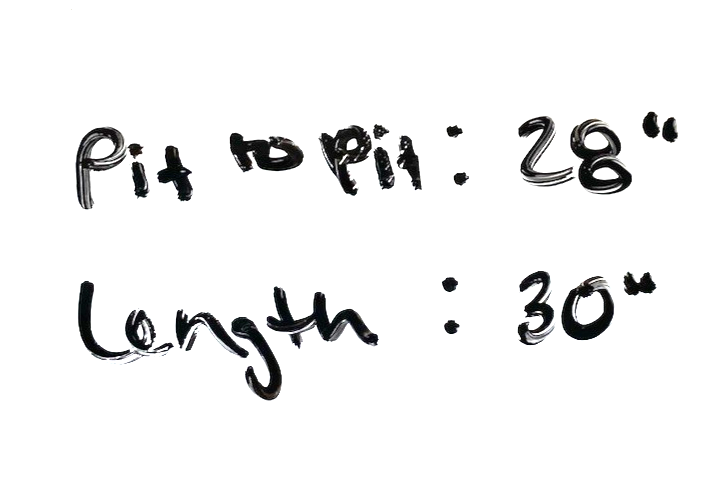 Pit to Pit : 28"
Length : 30"